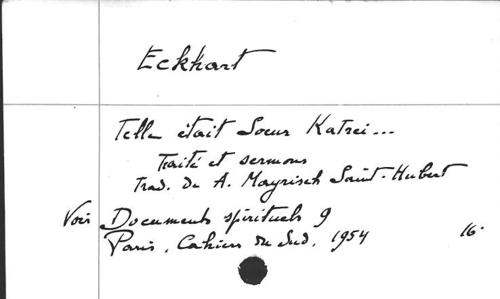 Eckhart
Telle était Soeur Katrei...
Traité et sermons
Trad. de A. Mayrisch Saint-Hubert
Voir Documents spirituels 9
Paris, Cahiers du Sud, 1954 16°